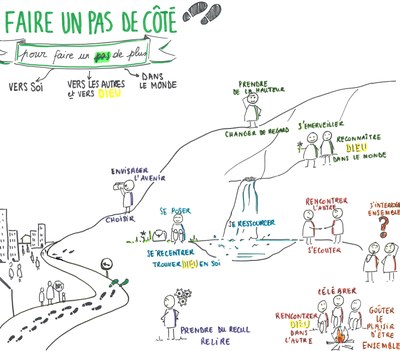 FAIRE UN PAS DE CÔTÉ
pour faire un pas de plus
VERS SOI
VERS LES AUTRES
ET VERS DIEU
DANS
LE MONDE
PRENDRE
DE LA HAUTEUR
CHANGER DE REGARD
S'ÉMERVEILLER
RECONNAÎTRE
DIEU
DANS LE MONDE
ENVISAGER
L'AVENIR
CHOISIR
SE POSER
SE RECENTRER
TROUVER DIEU EN SOI
SE RESSOURCER
RENCONTRER
L'AUTRE
S'ÉCOUTER
ENSEMBLE
?
PRENDRE DU RECUL
RELIRE
CÉLÉBRER
RENCONTRER
DIEU
DANS
L'AUTRE
GOÛTER
LE PLAISIR
D'ÊTRE
ENSEMBLE